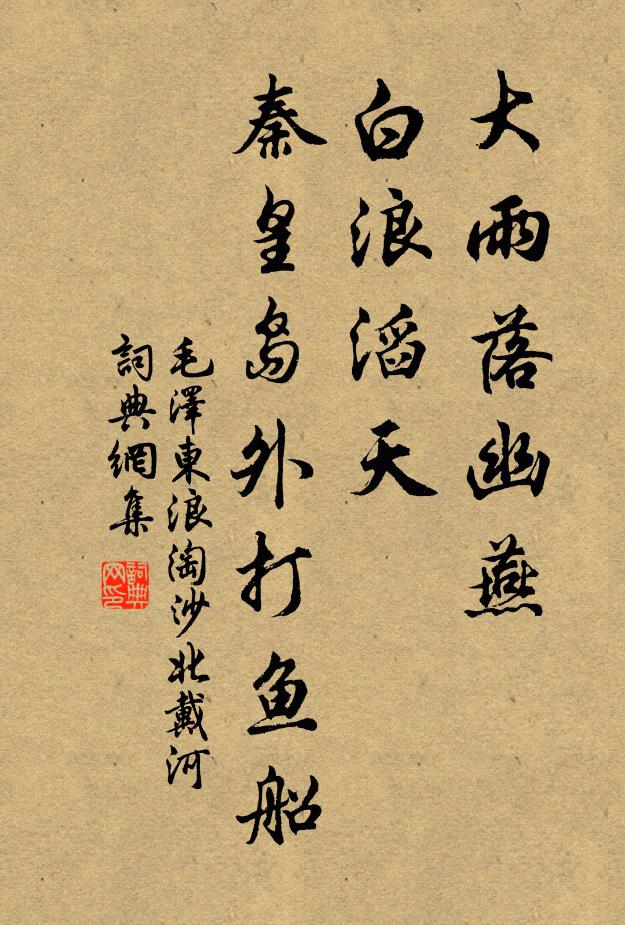 大雨落幽燕
白浪滔天
秦皇岛外打鱼船
毛澤東浪淘沙北戴河
詞典網集
詞典网印